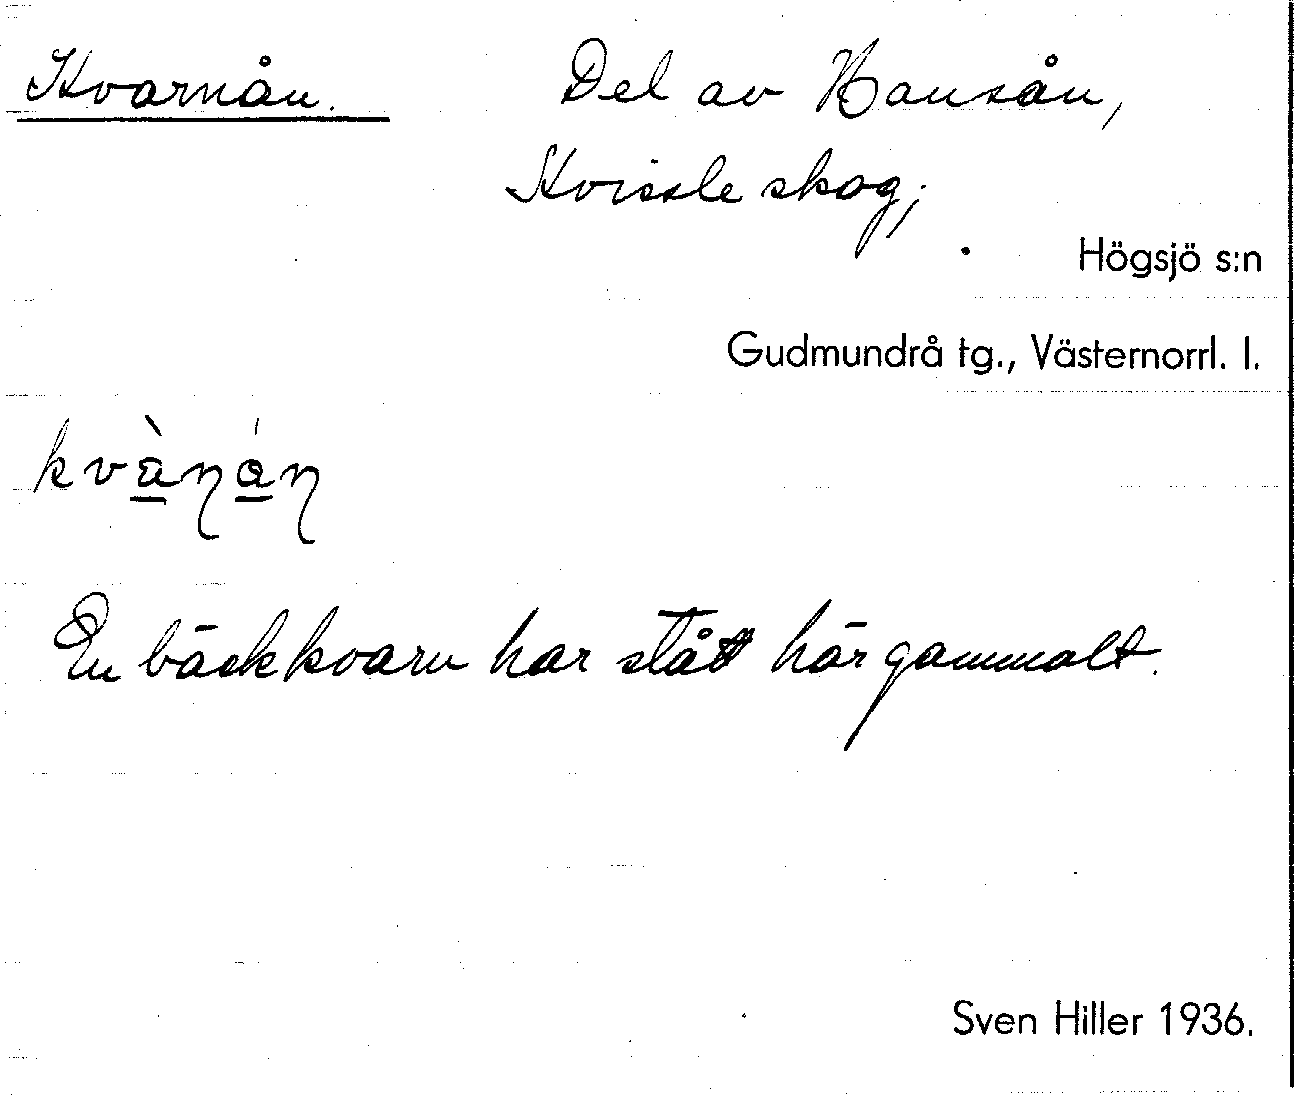 Kvarnån. Del av Hansån,
Kvissle skog,
Högsjö s:n
Gudmundrå tg., Västernorrl. l.
kvànán
En bäckkvarn har stått här gammalt.
Sven Hiller 1936.